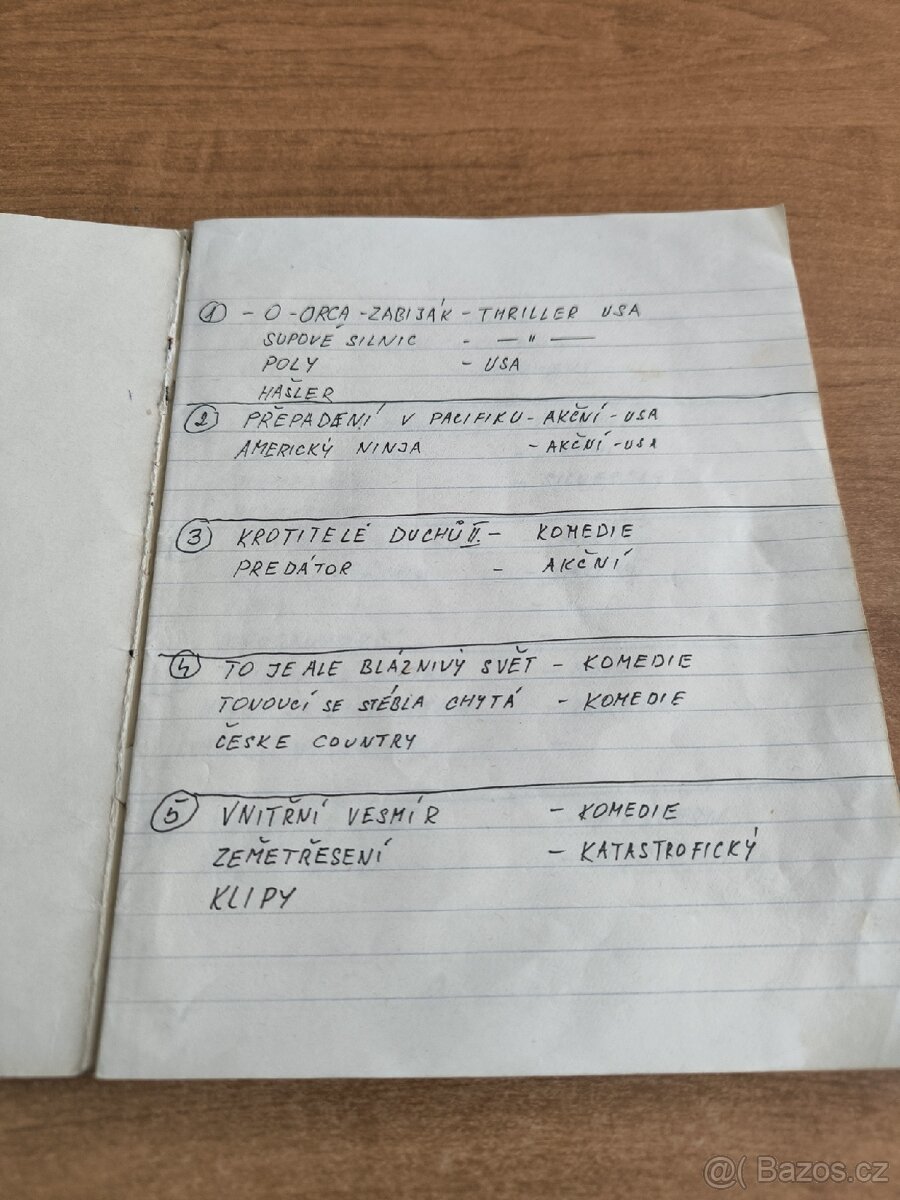 ① - O - ORCA - ZABIJÁK - THRILLER USA
SUPOVÉ SILNIC - — " —
POLY - USA
HAŠLER
② PŘEPADENÍ V PACIFIKU - AKČNÍ - USA
AMERICKÝ NINJA - AKČNÍ - USA
③ KROTITELÉ DUCHŮ II. - KOMEDIE
PREDÁTOR - AKČNÍ
④ TO JE ALE BLÁZNIVÝ SVĚT - KOMEDIE
TONOUCÍ SE STÉBLA CHYTÁ - KOMEDIE
ČESKE COUNTRY
⑤ VNITŘNÍ VESMÍR - KOMEDIE
ZEMĚTŘESENÍ - KATASTROFICKÝ
KLIPY
@( Bazos.cz